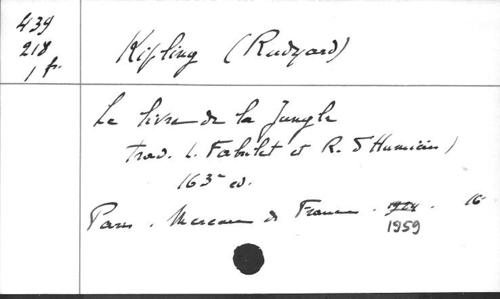 439
218
1 fr.
Kipling (Rudyard)
Le livre de la Jungle
trad. L. Fabulet et R. d'Humières)
163e ed.
Paris. Mercure de France. 1928. 16
1959